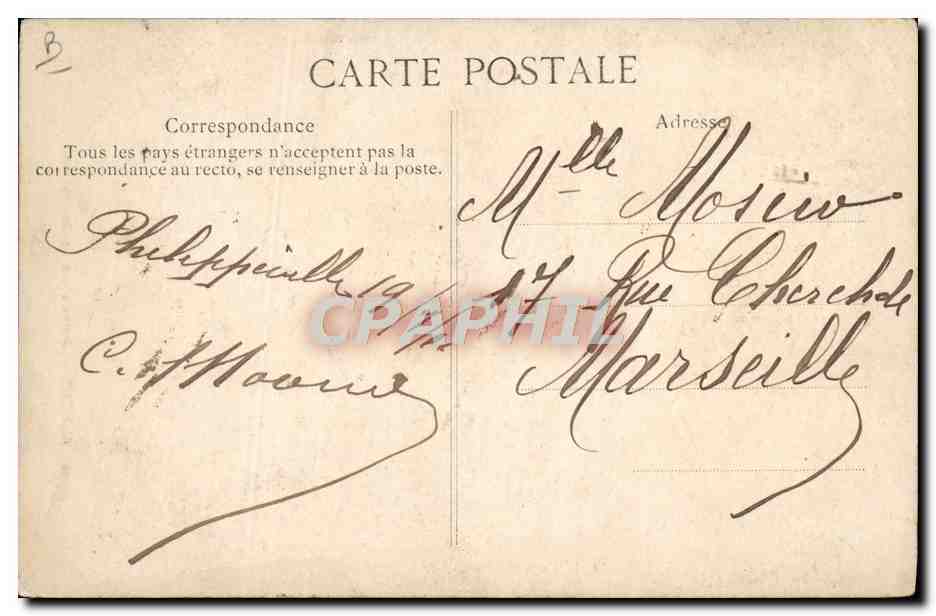 B
CARTE POSTALE
Correspondance
Tous les pays étrangers n'acceptent pas la
correspondance au recto, se renseigner à la poste.
Philippeville 19
Adresse
Mlle Mosino
17 Rue Cherchele
Marseille
CPAPHIL